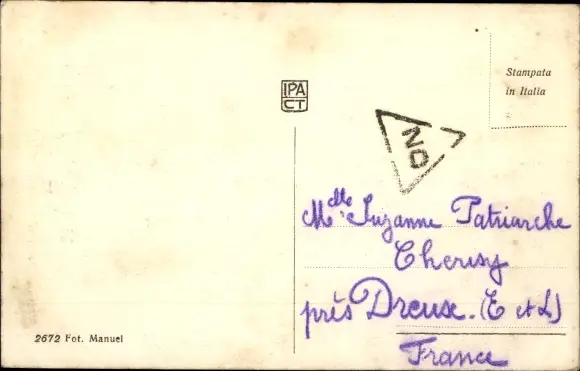 Stampata
in Italia
IPA
CT
ND
Mlle Suzanne Patriarche
Cherisy
près Dreux. (E et L)
France
2672 Fot. Manuel